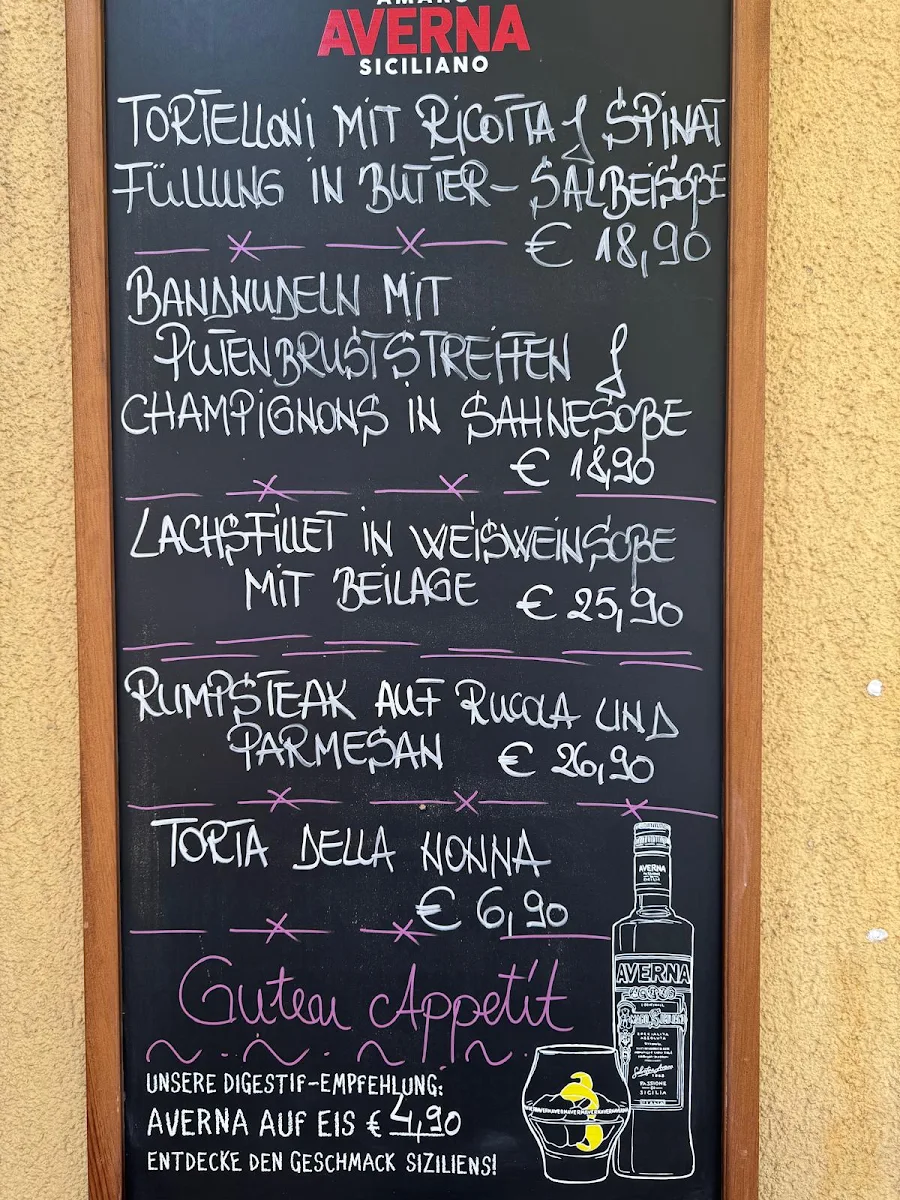 AMARO
AVERNA
SICILIANO
TORTELLONI MIT RICOTTA & SPINAT
FÜLLUNG IN BUTTER- SALBEISOßE
€ 18,90
BANDNUDELN MIT
PUTENBRUSTSTREIFEN &
CHAMPIGNONS IN SAHNESOßE
€ 18,90
LACHSFILLET IN WEISWEINSOßE
MIT BEILAGE € 25,90
RUMPSTEAK AUF RUCOLA UND
PARMESAN € 26,90
TORTA DELLA NONNA
€ 6,90
Guten Appetit
UNSERE DIGESTIF-EMPFEHLUNG:
AVERNA AUF EIS € 4,90
ENTDECKE DEN GESCHMACK SIZILIENS!
AVERNA
AVERNA
AMARO SICILIANO
SPECIALITÀ
ASSOLUTA
PASSIONE
DI
SICILIA